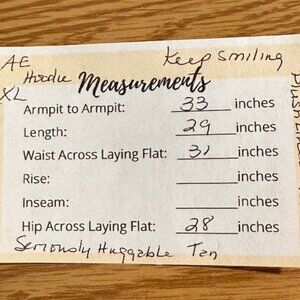 AE
Hoodie
XL
Keep Smiling
Measurements
Armpit to Armpit: 33 inches
Length: 29 inches
Waist Across Laying Flat: 31 inches
Rise: ______ inches
Inseam: ______ inches
Hip Across Laying Flat: 28 inches
Seriously Huggable Tan